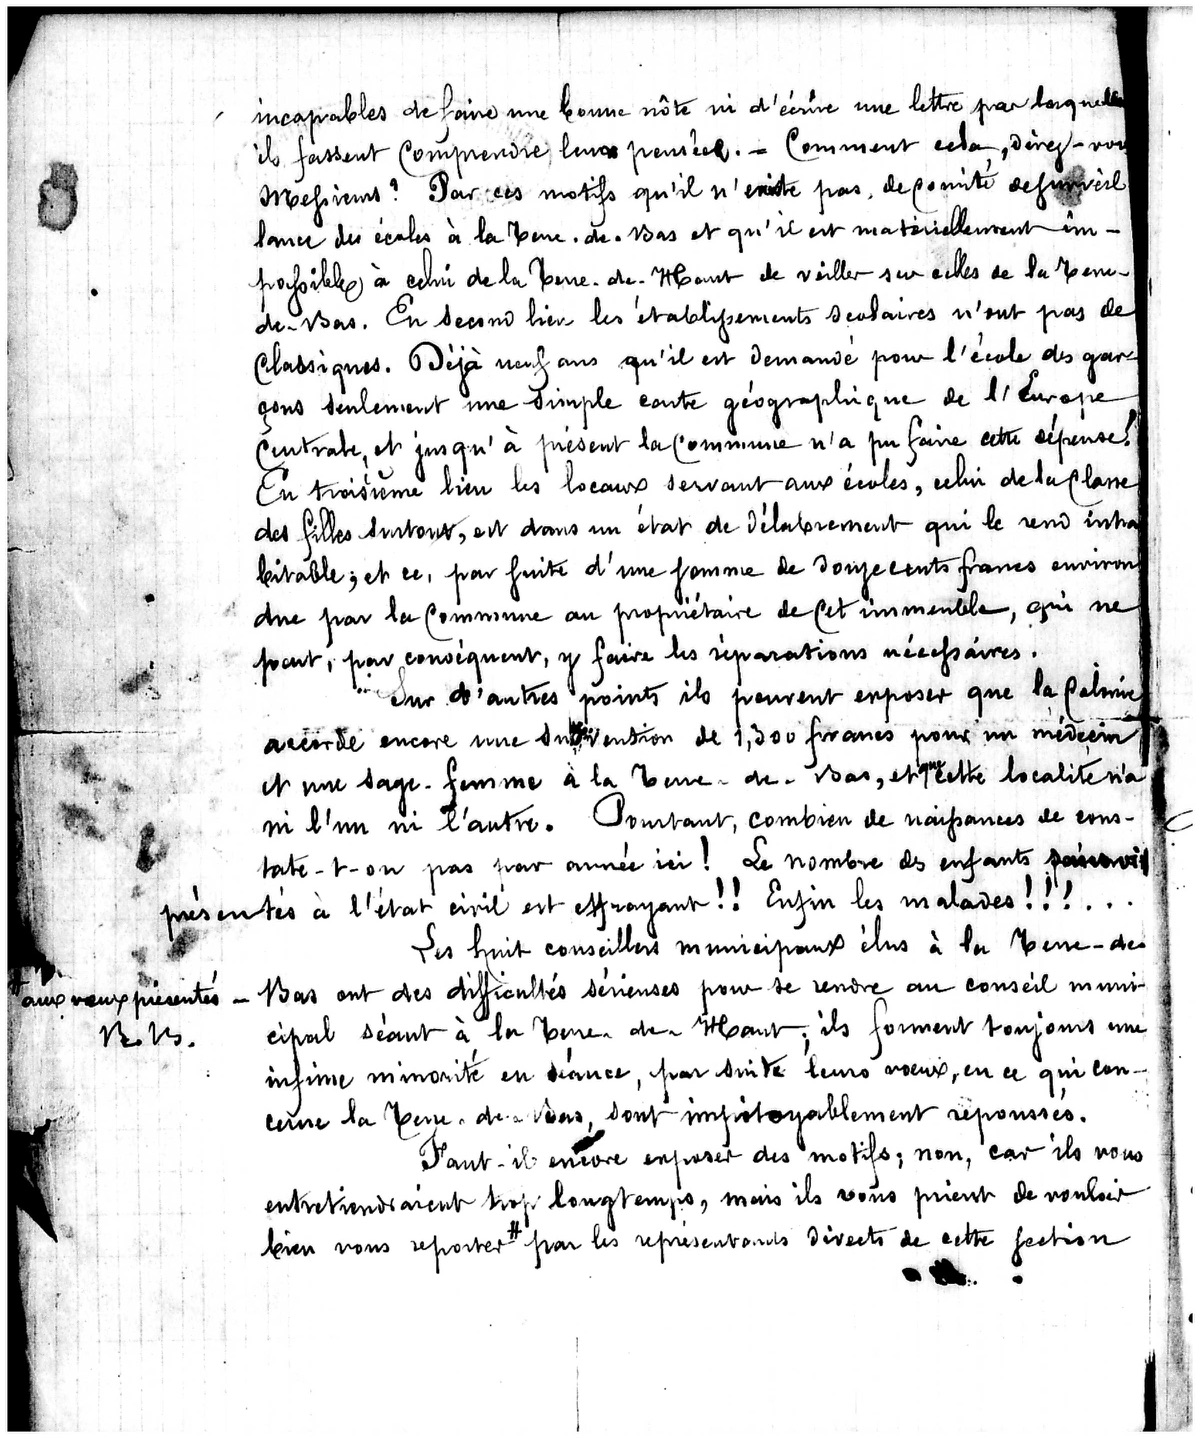 incapables de faire une bonne nôte ni d'écrire une lettre par laquelle
ils fassent comprendre leur pensée. — Comment cela, direz-vous
Messieurs? Par ces motifs qu'il n'existe pas de Comité de surveil
lance des écoles à la Terre-de-Bas et qu'il est matériellement im-
possible à celui de la Terre-de-Haut de veiller sur celles de la Terre-
de-Bas. En second lieu les établissements scolaires n'ont pas de
Classiques. Déjà neuf ans qu'il est demandé pour l'école des gar-
çons seulement une simple carte géographique de l'Europe
Centrale, et jusqu'à présent la Commune n'a pu faire cette dépense!
En troisième lieu les locaux servant aux écoles, celui de la Classe
des filles surtout, est dans un état de délabrement qui le rend inha
bitable; et ce, par suite d'une somme de douze cents francs environ
due par la Commune au propriétaire de cet immeuble, qui ne
peut, par conséquent, y faire les réparations nécessaires.
Sur d'autres points ils peuvent exposer que la Colonie
accorde encore une subvention de 1,300 francs pour un médecin
et une sage-femme à la Terre-de-Bas, et que cette localité n'a
ni l'un ni l'autre. Pourtant, combien de naissances de cons-
tate-t-on pas par année ici! Le nombre des enfants
présentés à l'état civil est effrayant!! Enfin les malades!!!...
Les huit conseillers municipaux élus à la Terre-de-
Bas ont des difficultés sérieuses pour se rendre au conseil muni
cipal séant à la Terre-de-Haut; ils forment toujours une
infime minorité en séance, par suite leurs vœux, en ce qui con-
cerne la Terre-de-Bas, sont impitoyablement repoussés.
Faut-il encore exposer des motifs; non, car ils vous
entretiendraient trop longtemps, mais ils vous prient de vouloir
bien vous reporter # par les représentants directs de cette section
# aux vœux présentés —